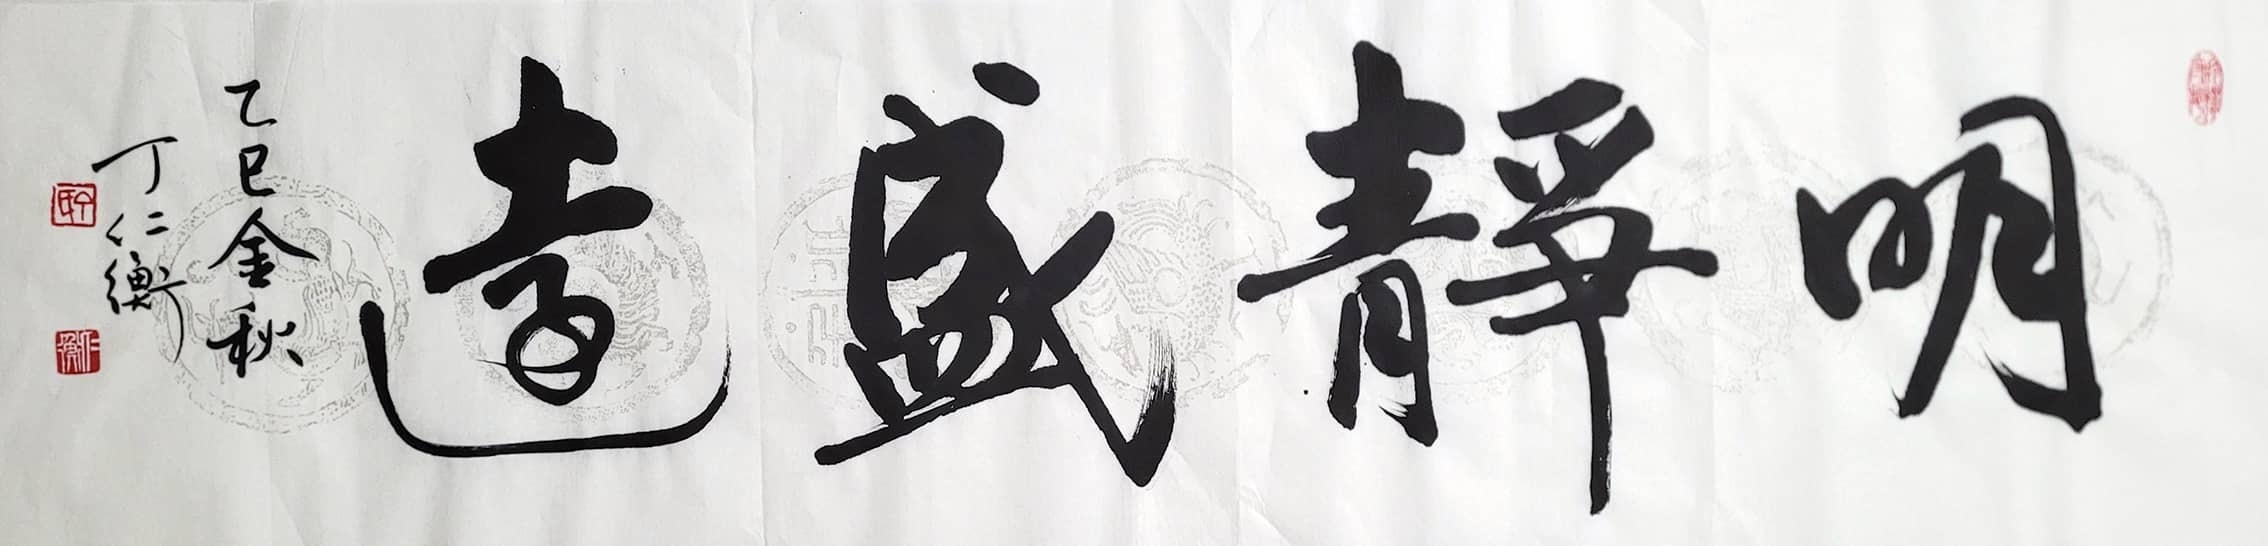 明靜盛遠
乙巳金秋
丁仁衡